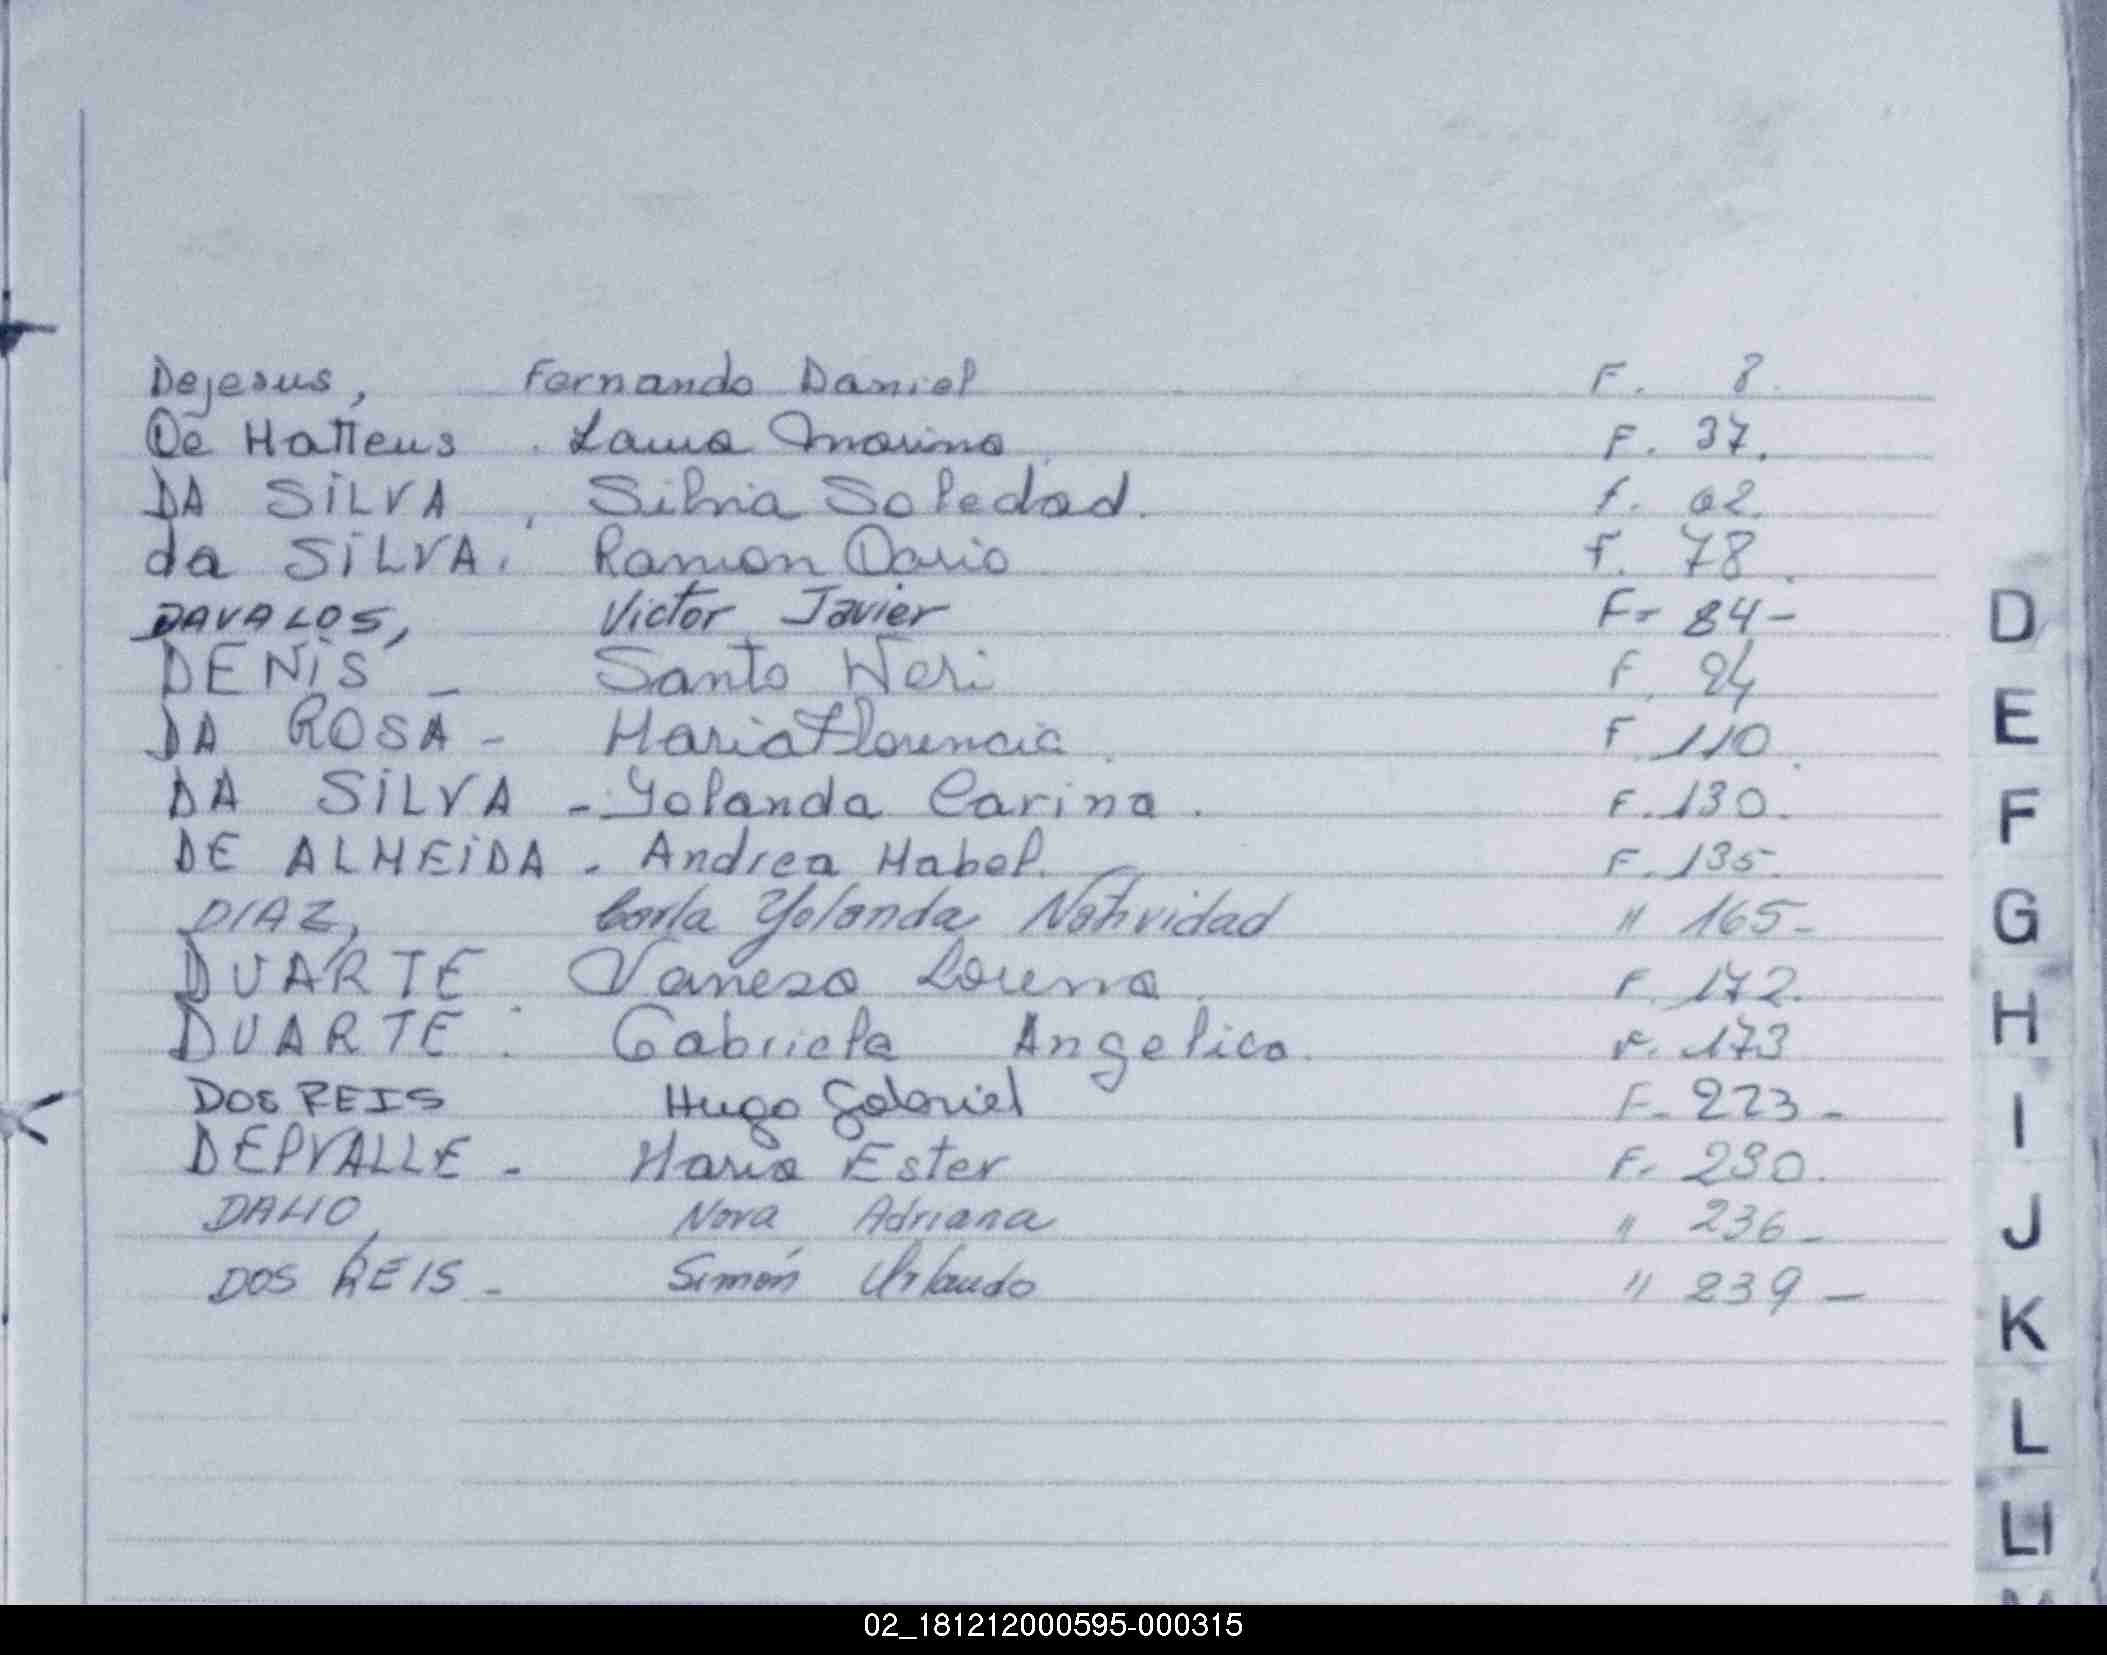 Dejesus, Fernando Daniel F. 8.
De Matteus . Laura Marina F. 37.
DA SILVA , Silvia Soledad. f. 62.
da SILVA. Ramon Dario F. 78.
DAVALOS, Victor Javier F- 84-
DENIS - Santo Neri F. 94
DA ROSA - Maria Florencia. F. 110.
DA SILVA - Yolanda Carina. F. 130.
DE ALMEIDA - Andrea Mabel. F. 135.
DIAZ, Carla Yolanda Natividad " 165-
DUARTE . Vanesa Lorena. F. 172.
DUARTE . Gabriela Angelica. F. 173
DOS REIS Hugo Gabriel F- 223-
DEPVALLE - Maria Ester F. 230.
Nora Adriana " 236-
DOS REIS - Simón Orlando " 239-
D
E
F
G
H
I
J
K
L
Ll
M
02_181212000595-000315